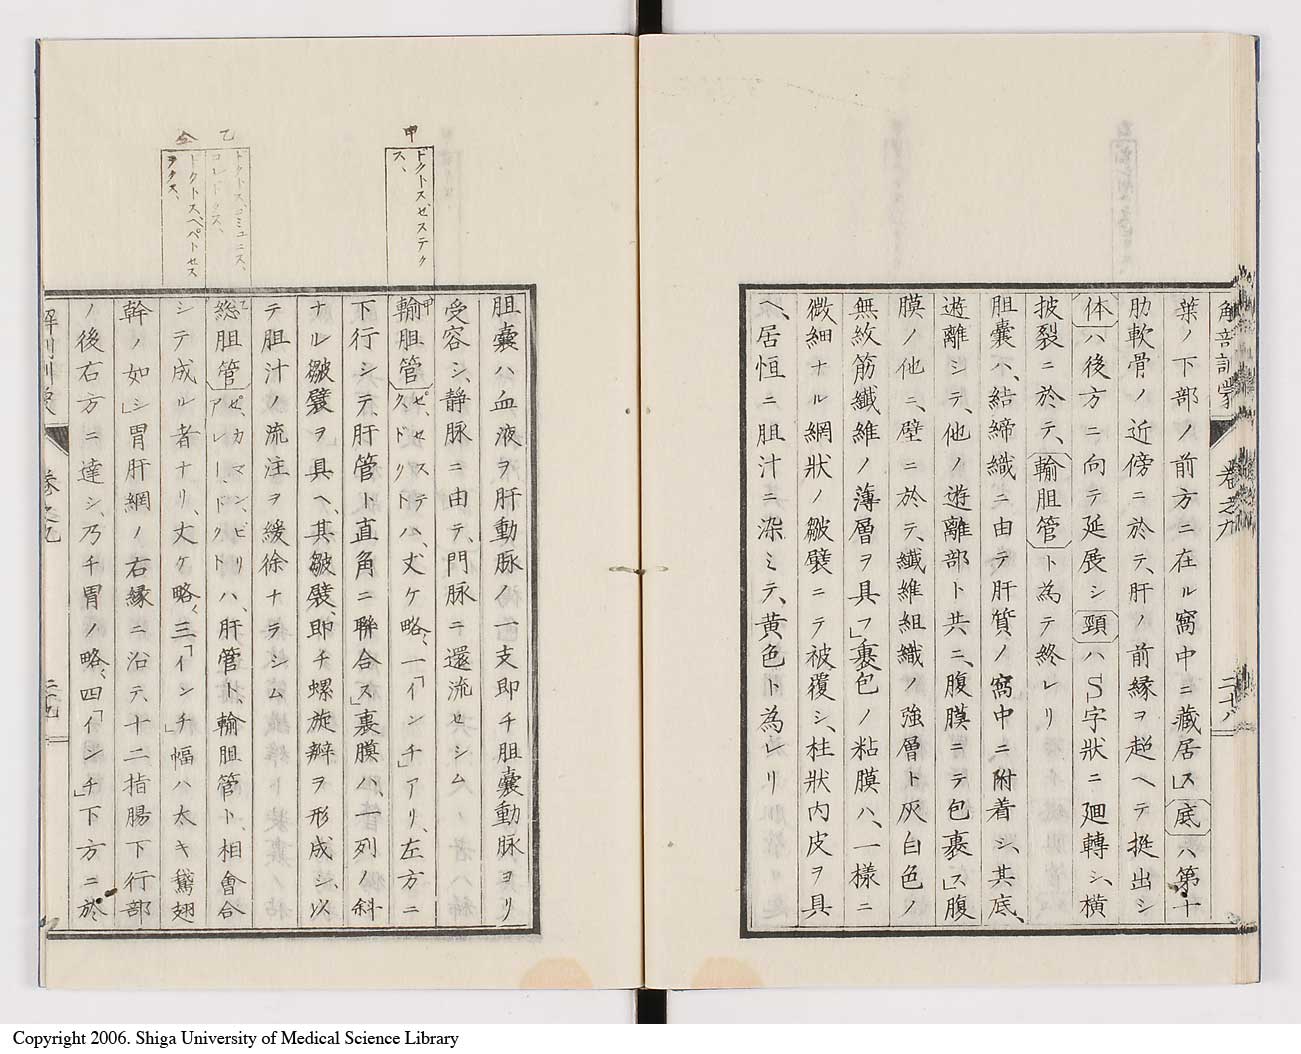 解剖訓蒙 卷之九 二十八
葉ノ下部ノ前方ニ在ル窩中ニ藏居ス」底ハ第十
肋軟骨ノ近傍ニ於テ、肝ノ前縁ヲ超ヘテ挺出シ
体ハ後方ニ向テ延展シ頸ハS字狀ニ廻轉シ、横
披裂ニ於テ、輸胆管ト為テ終レリ
胆嚢ハ、結締織ニ由テ肝質ノ窩中ニ附着シ、其底、
遊離シテ、他ノ遊離部ト共ニ、腹膜ニテ包裹ス」腹
膜ノ他ニ、壁ニ於テ、纎維組織ノ強層ト灰白色ノ
無紋筋纎維ノ薄層ヲ具フ」裹包ノ粘膜ハ、一様ニ
微細ナル網狀ノ皺襞ニテ被覆シ、柱狀内皮ヲ具
ヘ、居恒ニ胆汁ニ染ミテ、黄色ト為レリ
甲
ドクトス、ゼステク
ス、
乙
ドクトス、コミュニス、
コレドクス、
仝
ドクトス、ヘパトセス
ヲクス、
胆嚢ハ血液ヲ肝動脈ノ一支即チ胆嚢動脈ヨリ
受容シ、静脈ニ由テ、門脈ニ還流セシム
甲輸胆管ゼ、セステクス、ドクトハ、丈ケ略、一「インチ」アリ、左方ニ
下行シテ、肝管ト直角ニ聯合ス」裏膜ハ、一列ノ斜
ナル皺襞ヲ具ヘ、其皺襞、即チ螺旋瓣ヲ形成シ、以
テ胆汁ノ流注ヲ緩徐ナラシム
乙総胆管ゼ、カマン、ビリアレー、ドクトハ、肝管ト、輸胆管ト、相會合
シテ成ル者ナリ、丈ケ略、三「インチ」幅ハ太キ鵞翅
幹ノ如シ」胃肝網ノ右縁ニ沿テ、十二指腸下行部
ノ後右方ニ達シ、乃チ胃ノ略、四「インチ」下方ニ於
解剖訓蒙 卷之九 二十九
Copyright 2006. Shiga University of Medical Science Library